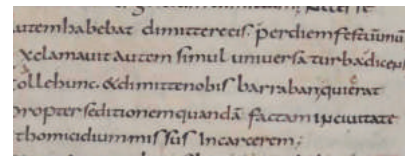 autem habebat dimittere eis. per diem festū unum
xclamauit autem simul uniuersa turba dicens
tolle hunc. & dimitte nobis barraban; qui erat
propter seditionem quandā factam in ciuitate
& homicidium missus in carcerem;